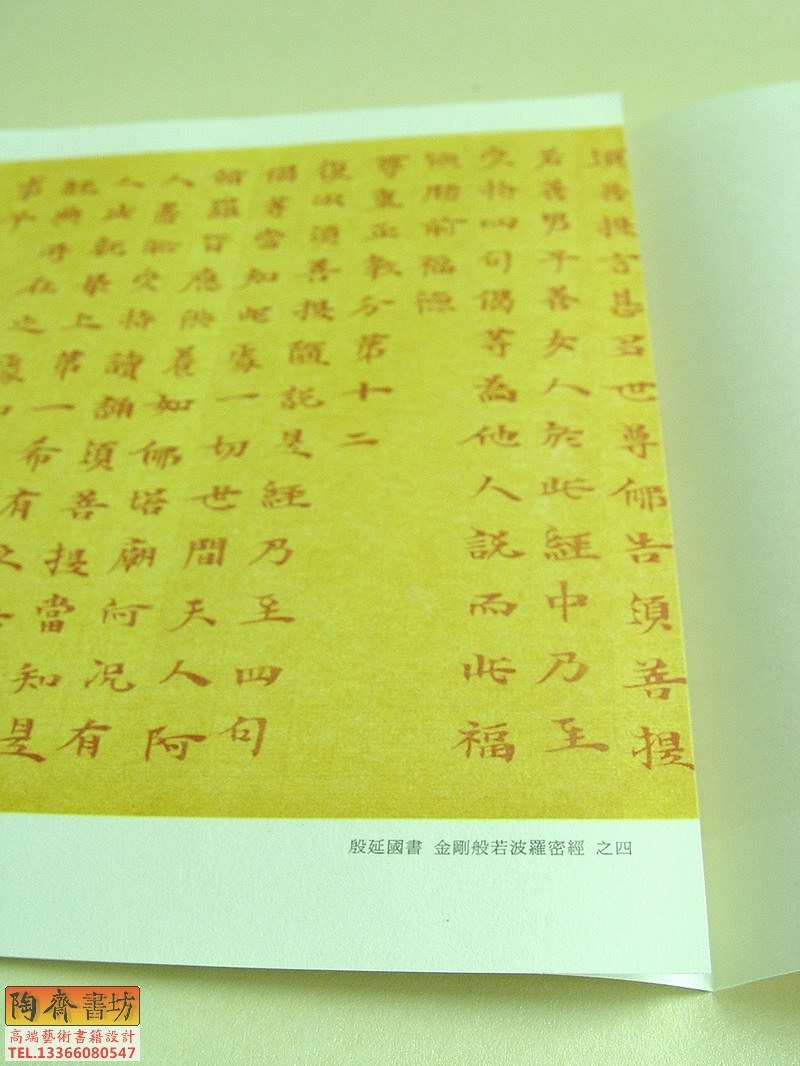 須菩提言甚多世尊佛告須菩提
若善男子善女人於此經中乃至
受持四句偈等為他人說而此福
德勝前福德
尊重正教分第十二
復次須菩提隨說是經乃至四句
偈等當知此處一切世間天人阿
脩羅皆應供養如佛塔廟何況有
人盡能受持讀誦須菩提當知是
人成就最上第一希有之
典
在之處
殷延國書 金剛般若波羅密經 之四
陶齋書坊
高端藝術書籍設計
TEL.13366080547